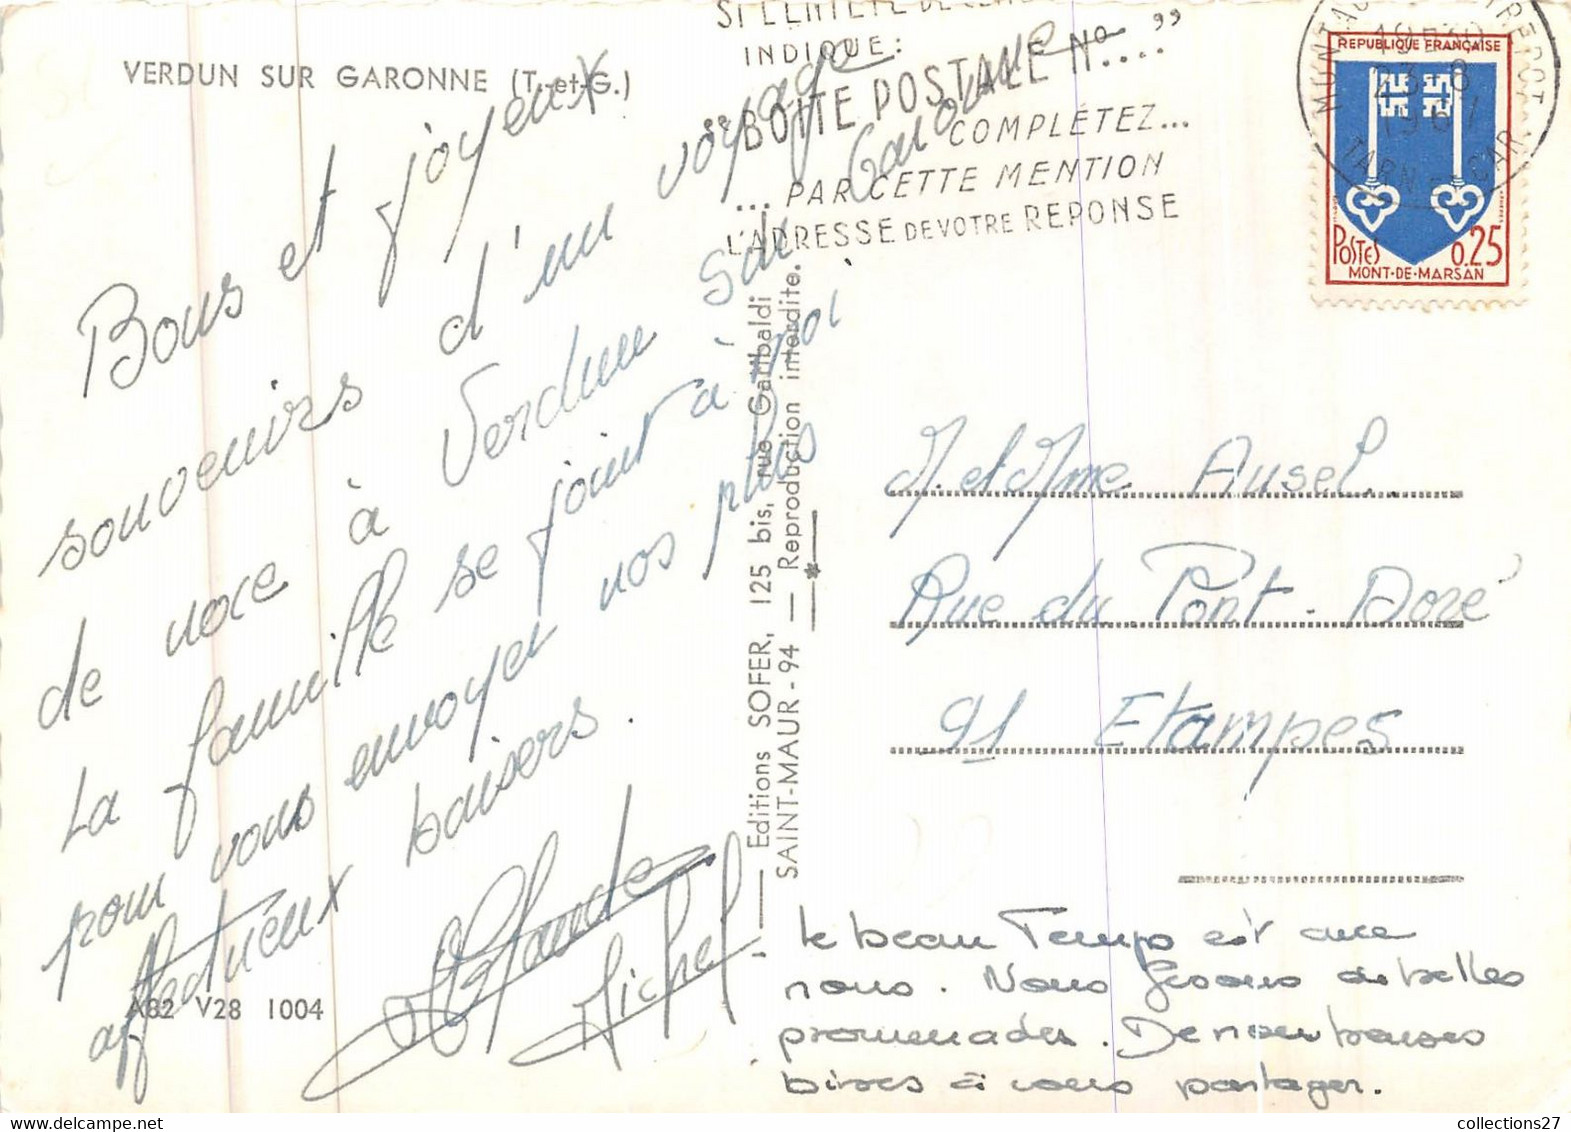 VERDUN SUR GARONNE (T.-et-G.)
Bons et joyeux
souvenirs d'un voyage
de noce à Verdun sur Garonne
La famille se joint à moi
pour vous envoyer nos plus
affectueux baisers.
Michel
A82 V28 1004
Editions SOFER, 125 bis, rue Garibaldi
SAINT-MAUR - 94 — Reproduction interdite.
INDIQUE:
"BOITE POSTALE Nº...."
COMPLÉTEZ...
... PAR CETTE MENTION
L'ADRESSE DE VOTRE REPONSE
19H30
23-8
1967
TARN ET GAR
REPUBLIQUE FRANÇAISE
POSTES 0.25
MONT-DE-MARSAN
M. et Mme Ausel
Rue du Pont-Doré
91 Etampes
le beau Temps est avec
nous. Nous fesons de belles
promenades. De nombreuses
bises à vous partager.
collections27